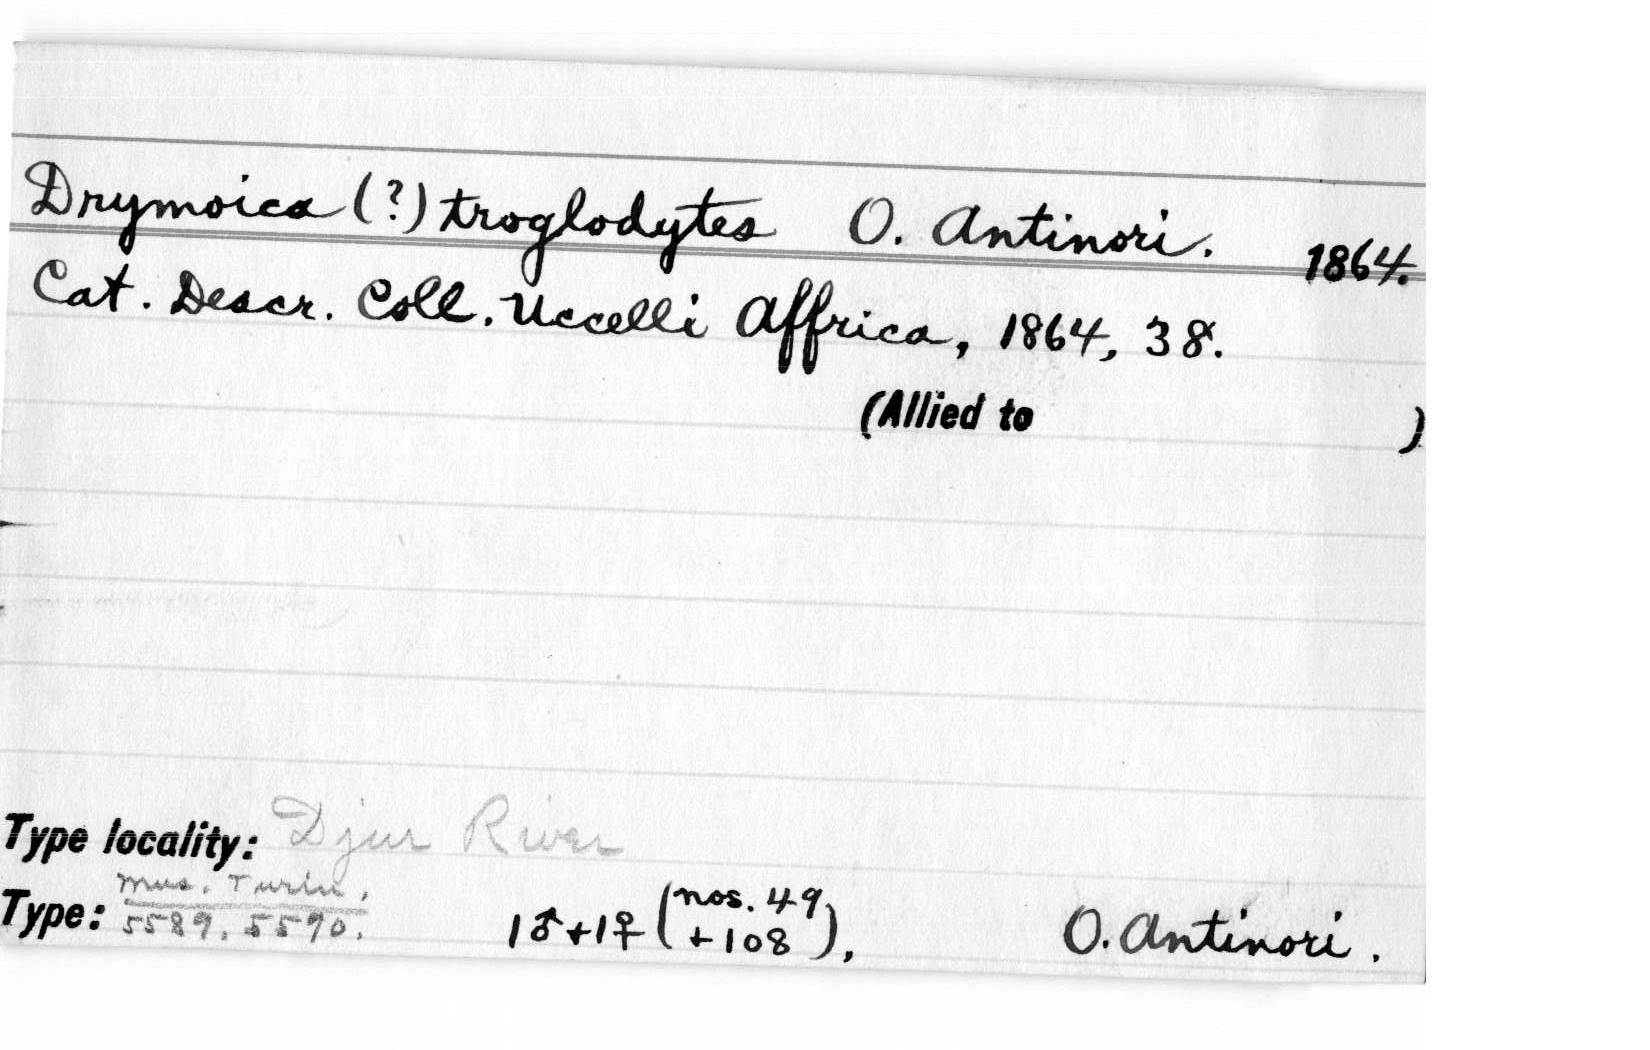 Drymoica (?) troglodytes O. Antinori. 1864.
Cat. Descr. Coll. Uccelli Affrica, 1864, 38.
(Allied to )
Type locality: Djur River
Mus. Turin.
Type: 5589, 5590. 1♂+1♀ (nos. 49
+108), O. Antinori.